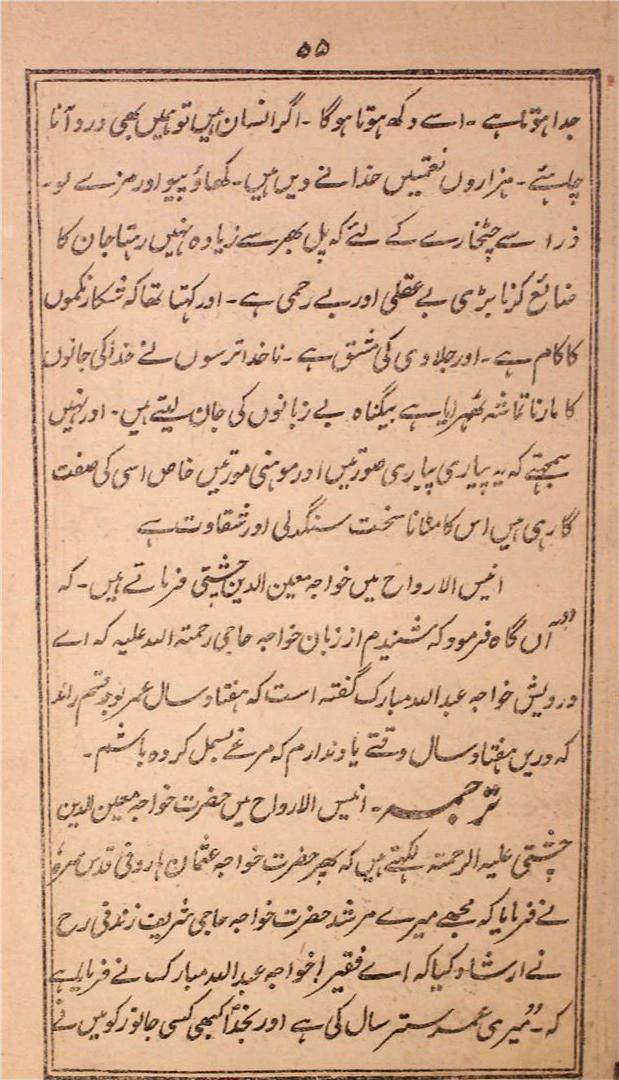 ۵۵
جدا ہوتا ہے ۔ اسے دکھ ہوتا ہوگا ۔ اگر انسان ہیں تو ہمیں بھی درد آنا
چاہئے ۔ ہزاروں نعمتیں خدا نے دیں ہیں ۔ کھاؤ پیو اور مزے لو ۔
ذرا سے چٹخارے کے لئے کہ پل بھر سے زیادہ نہیں رہتا جان کا
ضائع کرنا بڑی بے عقلی اور بے رحمی ہے ۔ اور کہتا تھا کہ شکار نکموں
کا کام ہے ۔ اور جلادی کی مشق ہے ۔ ناخدا ترسوں نے خدا کی جانوں
کا مارنا تماشہ ٹھہرایا ہے بیگناہ بے زبانوں کی جان لیتے ہیں ۔ اور نہیں
سمجھتے کہ یہ پیاری پیاری صورتیں اور موہنی مورتیں خاص اسی کی صفت
گا رہی ہیں اس کا مٹانا سخت سنگدلی اور شقاوت ہے
انیس الارواح میں خواجہ معین الدین چشتی فرماتے ہیں ۔ کہ
"آں گاہ فرمود کہ شنیدم از زبان خواجہ حاجی رحمتہ اللہ علیہ کہ اے
درویش خواجہ عبداللہ مبارک گفتہ است کہ ہفتاد سال عمر
کہ دریں ہفتاد سال وقتے یاد ندارم کہ مرغے بسمل کردہ باشم ۔
ترجمہ ۔ انیس الارواح میں حضرت خواجہ معین الدین
چشتی علیہ الرحمتہ لکھتے ہیں کہ پھر حضرت خواجہ عثمان ہارونی قدس سرہٗ
نے فرمایا کہ مجھے میرے مرشد حضرت خواجہ حاجی شریف زندنی رح
نے ارشاد کیا کہ اے فقیر! خواجہ عبداللہ مبارک نے فرمایا ہے
کہ ۔ "میری عمر ستر سال کی ہے اور بخدا کبھی کسی جانور کو میں نے